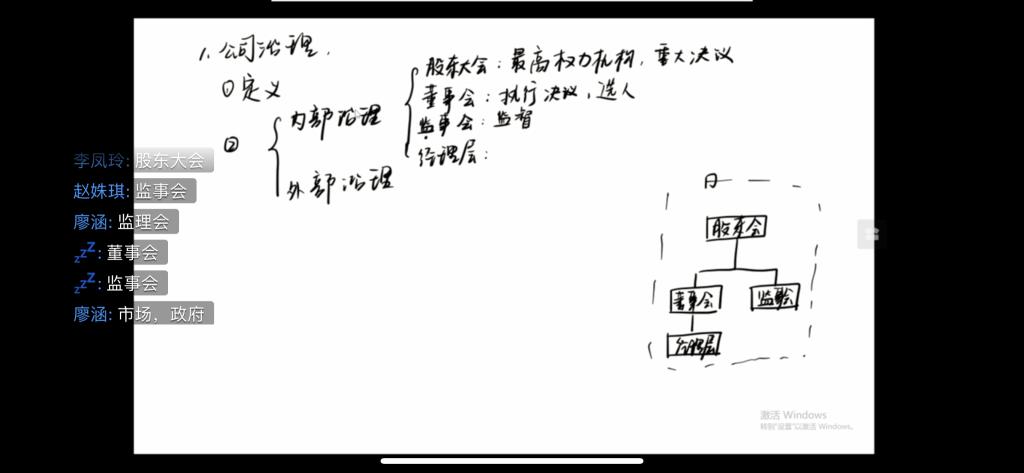 1. 公司治理.
① 定义
② 内部治理
股东大会：最高权力机构，重大决议
董事会：执行决议，选人
监事会：监督
经理层：
外部治理
李凤玲: 股东大会
赵姝琪: 监事会
廖涵: 监理会
zzZ: 董事会
zzZ: 监事会
廖涵: 市场，政府
股东会
董事会
监事会
经理层
激活 Windows
转到"设置"以激活 Windows。